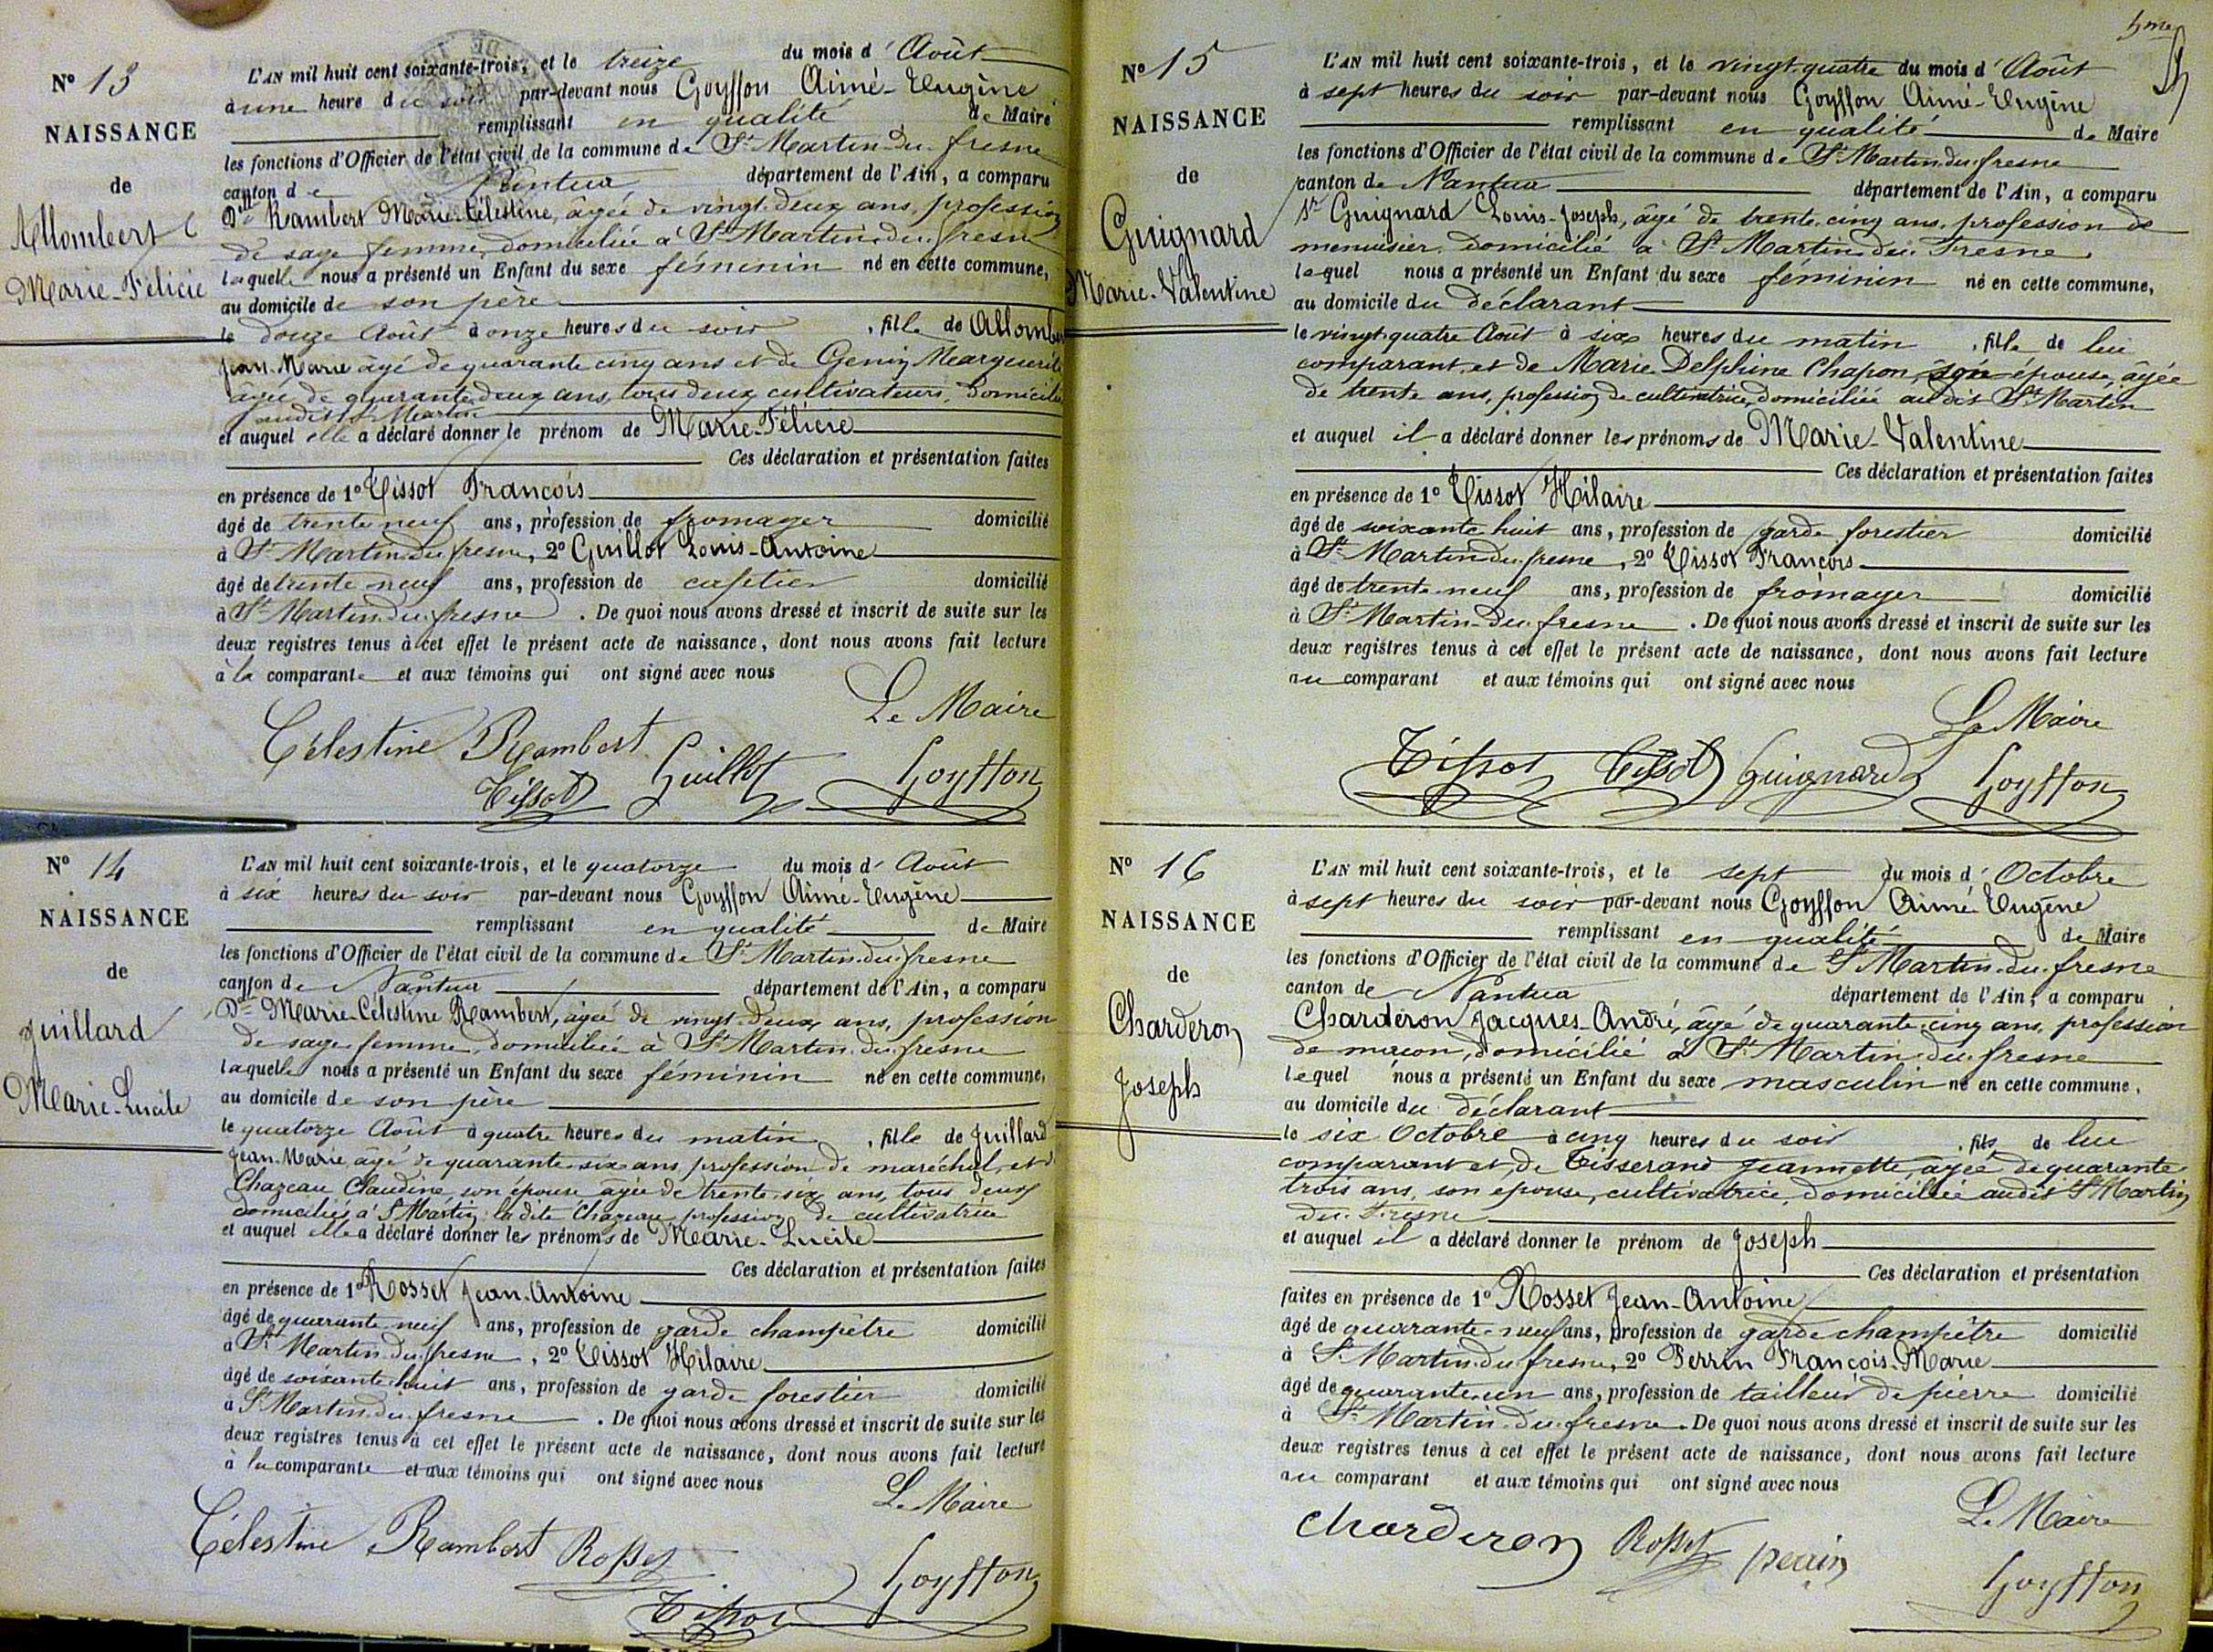 N° 13
NAISSANCE
de
Allombert
Marie-Félicie
L'AN mil huit cent soixante-trois, et le treize du mois d'Août
à une heure du soir par-devant nous Goyffon Aimé-Eugène
remplissant en qualité de Maire
les fonctions d'Officier de l'état civil de la commune de St Martin-du-fresne
canton de Nantua département de l'Ain, a comparu
Dlle Rambert Marie-Célestine, âgée de vingt-deux ans, profession
de sage femme, domiciliée à St Martin-du-fresne
laquelle nous a présenté un Enfant du sexe féminin né en cette commune,
au domicile de son père
le douze Août à onze heures du soir, fille de Allombert
Jean-Marie âgé de quarante cinq ans et de Genin Marguerite
âgée de quarante deux ans, tous deux cultivateurs, domiciliés
audit St Martin
et auquel elle a déclaré donner le prénom de Marie-Félicie
Ces déclaration et présentation faites
en présence de 1° Tissot François
âgé de trente neuf ans, profession de fromager domicilié
à St Martin-du-fresne, 2° Guillot Louis-Antoine
âgé de trente neuf ans, profession de cafetier domicilié
à St Martin-du-fresne. De quoi nous avons dressé et inscrit de suite sur les
deux registres tenus à cet effet le présent acte de naissance, dont nous avons fait lecture
à la comparante et aux témoins qui ont signé avec nous
Le Maire
Célestine Rambert
Tissot Guillot Goyffon
N° 14
NAISSANCE
de
Juillard
Marie-Lucile
L'AN mil huit cent soixante-trois, et le quatorze du mois d'Août
à six heures du soir par-devant nous Goyffon Aimé-Eugène
remplissant en qualité de Maire
les fonctions d'Officier de l'état civil de la commune de St Martin-du-fresne
canton de Nantua département de l'Ain, a comparu
Dlle Marie-Célestine Rambert, âgée de vingt-deux ans, profession
de sage femme, domiciliée à St Martin-du-fresne
laquelle nous a présenté un Enfant du sexe féminin né en cette commune,
au domicile de son père
le quatorze Août à quatre heures du matin, fille de Juillard
Jean-Marie, âgé de quarante-six ans, profession de maréchal, et de
Chazeau Claudine, son épouse âgée de trente-six ans, tous deux
domiciliés à St Martin; la dite Chazeau profession de cultivatrice
et auquel elle a déclaré donner les prénoms de Marie-Lucile
Ces déclaration et présentation faites
en présence de 1° Rosset Jean-Antoine
âgé de quarante-neuf ans, profession de garde champêtre domicilié
à St Martin-du-fresne, 2° Tissot Hilaire
âgé de soixante huit ans, profession de garde forestier domicilié
à St Martin-du-fresne. De quoi nous avons dressé et inscrit de suite sur les
deux registres tenus à cet effet le présent acte de naissance, dont nous avons fait lecture
à la comparante et aux témoins qui ont signé avec nous
Le Maire
Célestine Rambert Rosset Goyffon
Tissot
5me
N° 15
NAISSANCE
de
Guignard
Marie-Valentine
L'AN mil huit cent soixante-trois, et le vingt-quatre du mois d'Août
à sept heures du soir par-devant nous Goyffon Aimé-Eugène
remplissant en qualité de Maire
les fonctions d'Officier de l'état civil de la commune de St Martin-du-fresne
canton de Nantua département de l'Ain, a comparu
Sr Guignard Louis-Joseph, âgé de trente-cinq ans, profession de
menuisier domicilié à St Martin-du-Fresne
lequel nous a présenté un Enfant du sexe féminin né en cette commune,
au domicile du déclarant
le vingt-quatre Août à six heures du matin, fille de lui
comparant, et de Marie Delphine Chapon, son épouse, âgée
de trente ans, profession de cultivatrice, domiciliée audit St Martin
et auquel il a déclaré donner les prénoms de Marie-Valentine
Ces déclaration et présentation faites
en présence de 1° Tissot Hilaire
âgé de soixante huit ans, profession de garde forestier domicilié
à St Martin-du-fresne, 2° Tissot François
âgé de trente-neuf ans, profession de fromager domicilié
à St Martin-du-fresne. De quoi nous avons dressé et inscrit de suite sur les
deux registres tenus à cet effet le présent acte de naissance, dont nous avons fait lecture
au comparant et aux témoins qui ont signé avec nous
Le Maire
Tissot Tissot Guignard Goyffon
N° 16
NAISSANCE
de
Charderon
Joseph
L'AN mil huit cent soixante-trois, et le sept du mois d'Octobre
à sept heures du soir par-devant nous Goyffon Aimé-Eugène
remplissant en qualité de Maire
les fonctions d'Officier de l'état civil de la commune de St Martin-du-fresne
canton de Nantua département de l'Ain, a comparu
Charderon Jacques-André, âgé de quarante-cinq ans, profession
de maçon, domicilié à St Martin-du-fresne
lequel nous a présenté un Enfant du sexe masculin né en cette commune,
au domicile du déclarant
le six Octobre à cinq heures du soir, fils de lui
comparant et de Tisserand Jeannette, âgée de quarante
trois ans, son épouse, cultivatrice, domiciliée audit St Martin
du-Fresne
et auquel il a déclaré donner le prénom de Joseph
Ces déclaration et présentation
faites en présence de 1° Rosset Jean-Antoine
âgé de quarante-neuf ans, profession de garde champêtre domicilié
à St Martin-du-fresne, 2° Perrin François-Marie
âgé de quarante-un ans, profession de tailleur de pierre domicilié
à St Martin-du-fresne. De quoi nous avons dressé et inscrit de suite sur les
deux registres tenus à cet effet le présent acte de naissance, dont nous avons fait lecture
au comparant et aux témoins qui ont signé avec nous
Le Maire
Charderon Rosset perin
Goyffon